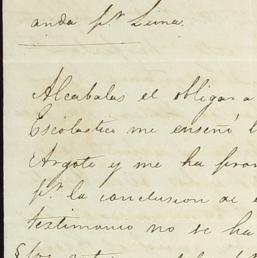 anda pr. Lima.
Alcabalas el obligar a
Escolastico me enseñó l
Argote y me ha pro
pr. la conclusion de e
testimonio no se ha